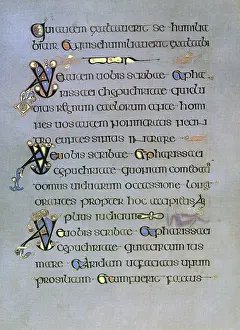 Qui autem exaltauerit se humilia
bitur & qui se humiliauerit exaltabi
Uae autem uobis scribae & phar
issaei hipochritae quiclu
ditis regnum caelorum ante ho
mines uos autem non intratis nec in
troeuntes sinitis intrare
Uae uobis scribae & pharissaei
hipochritae quoniam comeditis
domus uiduarum occassione longa
orantes propter hoc accipietis am
plius iudicium
Uae uobis scribae & pharissaei
hipochritae quia circuitis
mare & aridam ut faciatis unum
prosilitum & cum fuerit factus